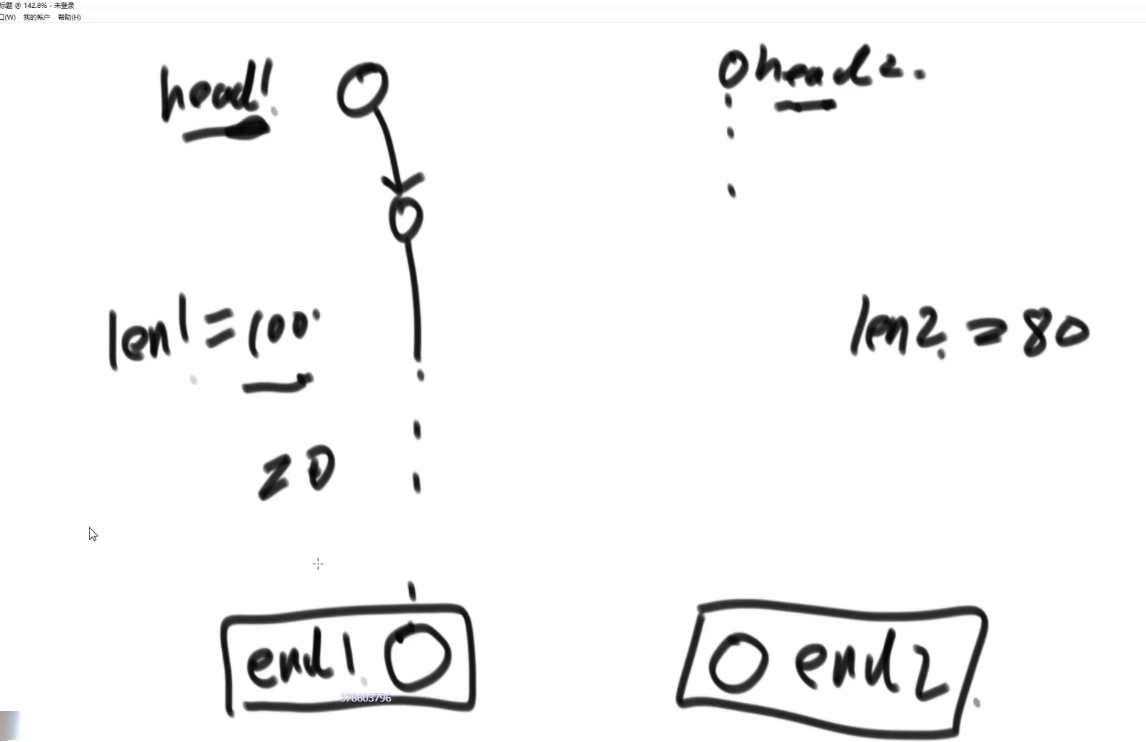 标题 @ 142.8% - 未登录
口(W) 我的帐户 帮助(H)
head1
head2.
len1=100
len2=80
20
end1
end2
378603796